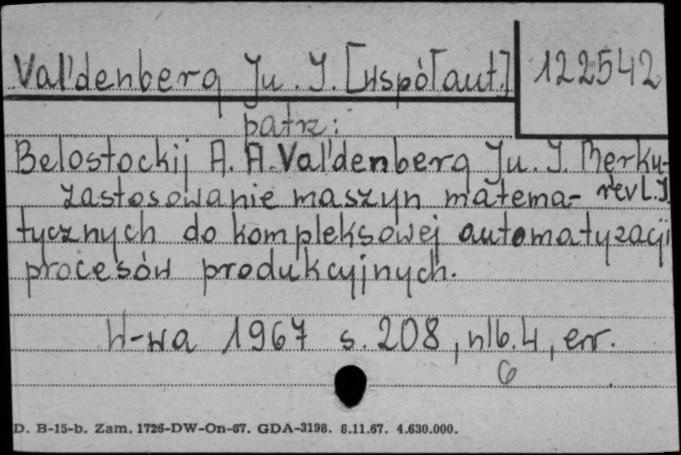 Val'denberg Ju. I. [współaut.]
122542
patrz:
Belostockij A. A. Val'denberg Ju. I. Merku-
rev L. I
Zastosowanie maszyn matema-
tycznych do kompleksowej automatyzacji
procesów produkcyjnych.
W-wa 1967 s. 208, nlb. 4, err.
6
D. B-15-b. Zam. 1726-DW-On-67. GDA-3198. 8.11.67. 4.630.000.